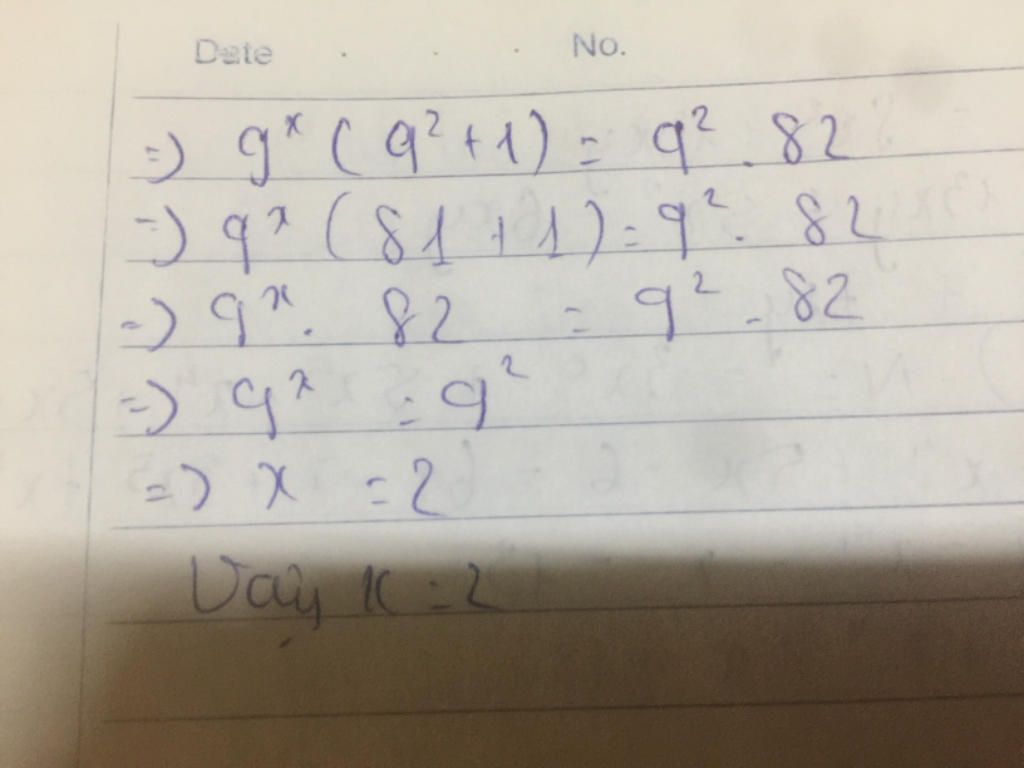 Date . . . No.
=) 9ˣ ( 9² + 1 ) = 9² . 82
=) 9ˣ ( 81 + 1 ) = 9² . 82
=) 9ˣ . 82 = 9² . 82
=) 9ˣ = 9²
=) x = 2
Vậy x = 2